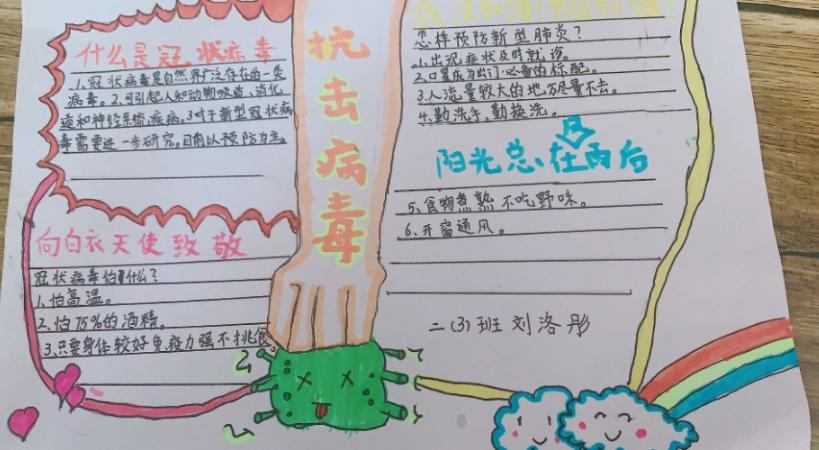 什么是冠状病毒
1.冠状病毒是自然界广泛存在的一类
病毒。2.可引起人和动物呼吸道、消化
道和神经系统疾病。3.对于新型冠状病
毒需要进一步研究,目前以预防为主。
向白衣天使致敬
冠状病毒怕什么?
1.怕高温。
2.怕75%的酒精。
3.只要身体较好免疫力强不挑食。
抗击病毒
怎样预防新型肺炎?
1.出现症状及时就诊。
2.口罩成为出门必备的标配。
3.人流量较大的地方尽量不去。
4.勤洗手、勤换洗。
阳光总在雨后
风
5.食物煮熟 不吃野味。
6.开窗通风。
二(3)班 刘洛彤